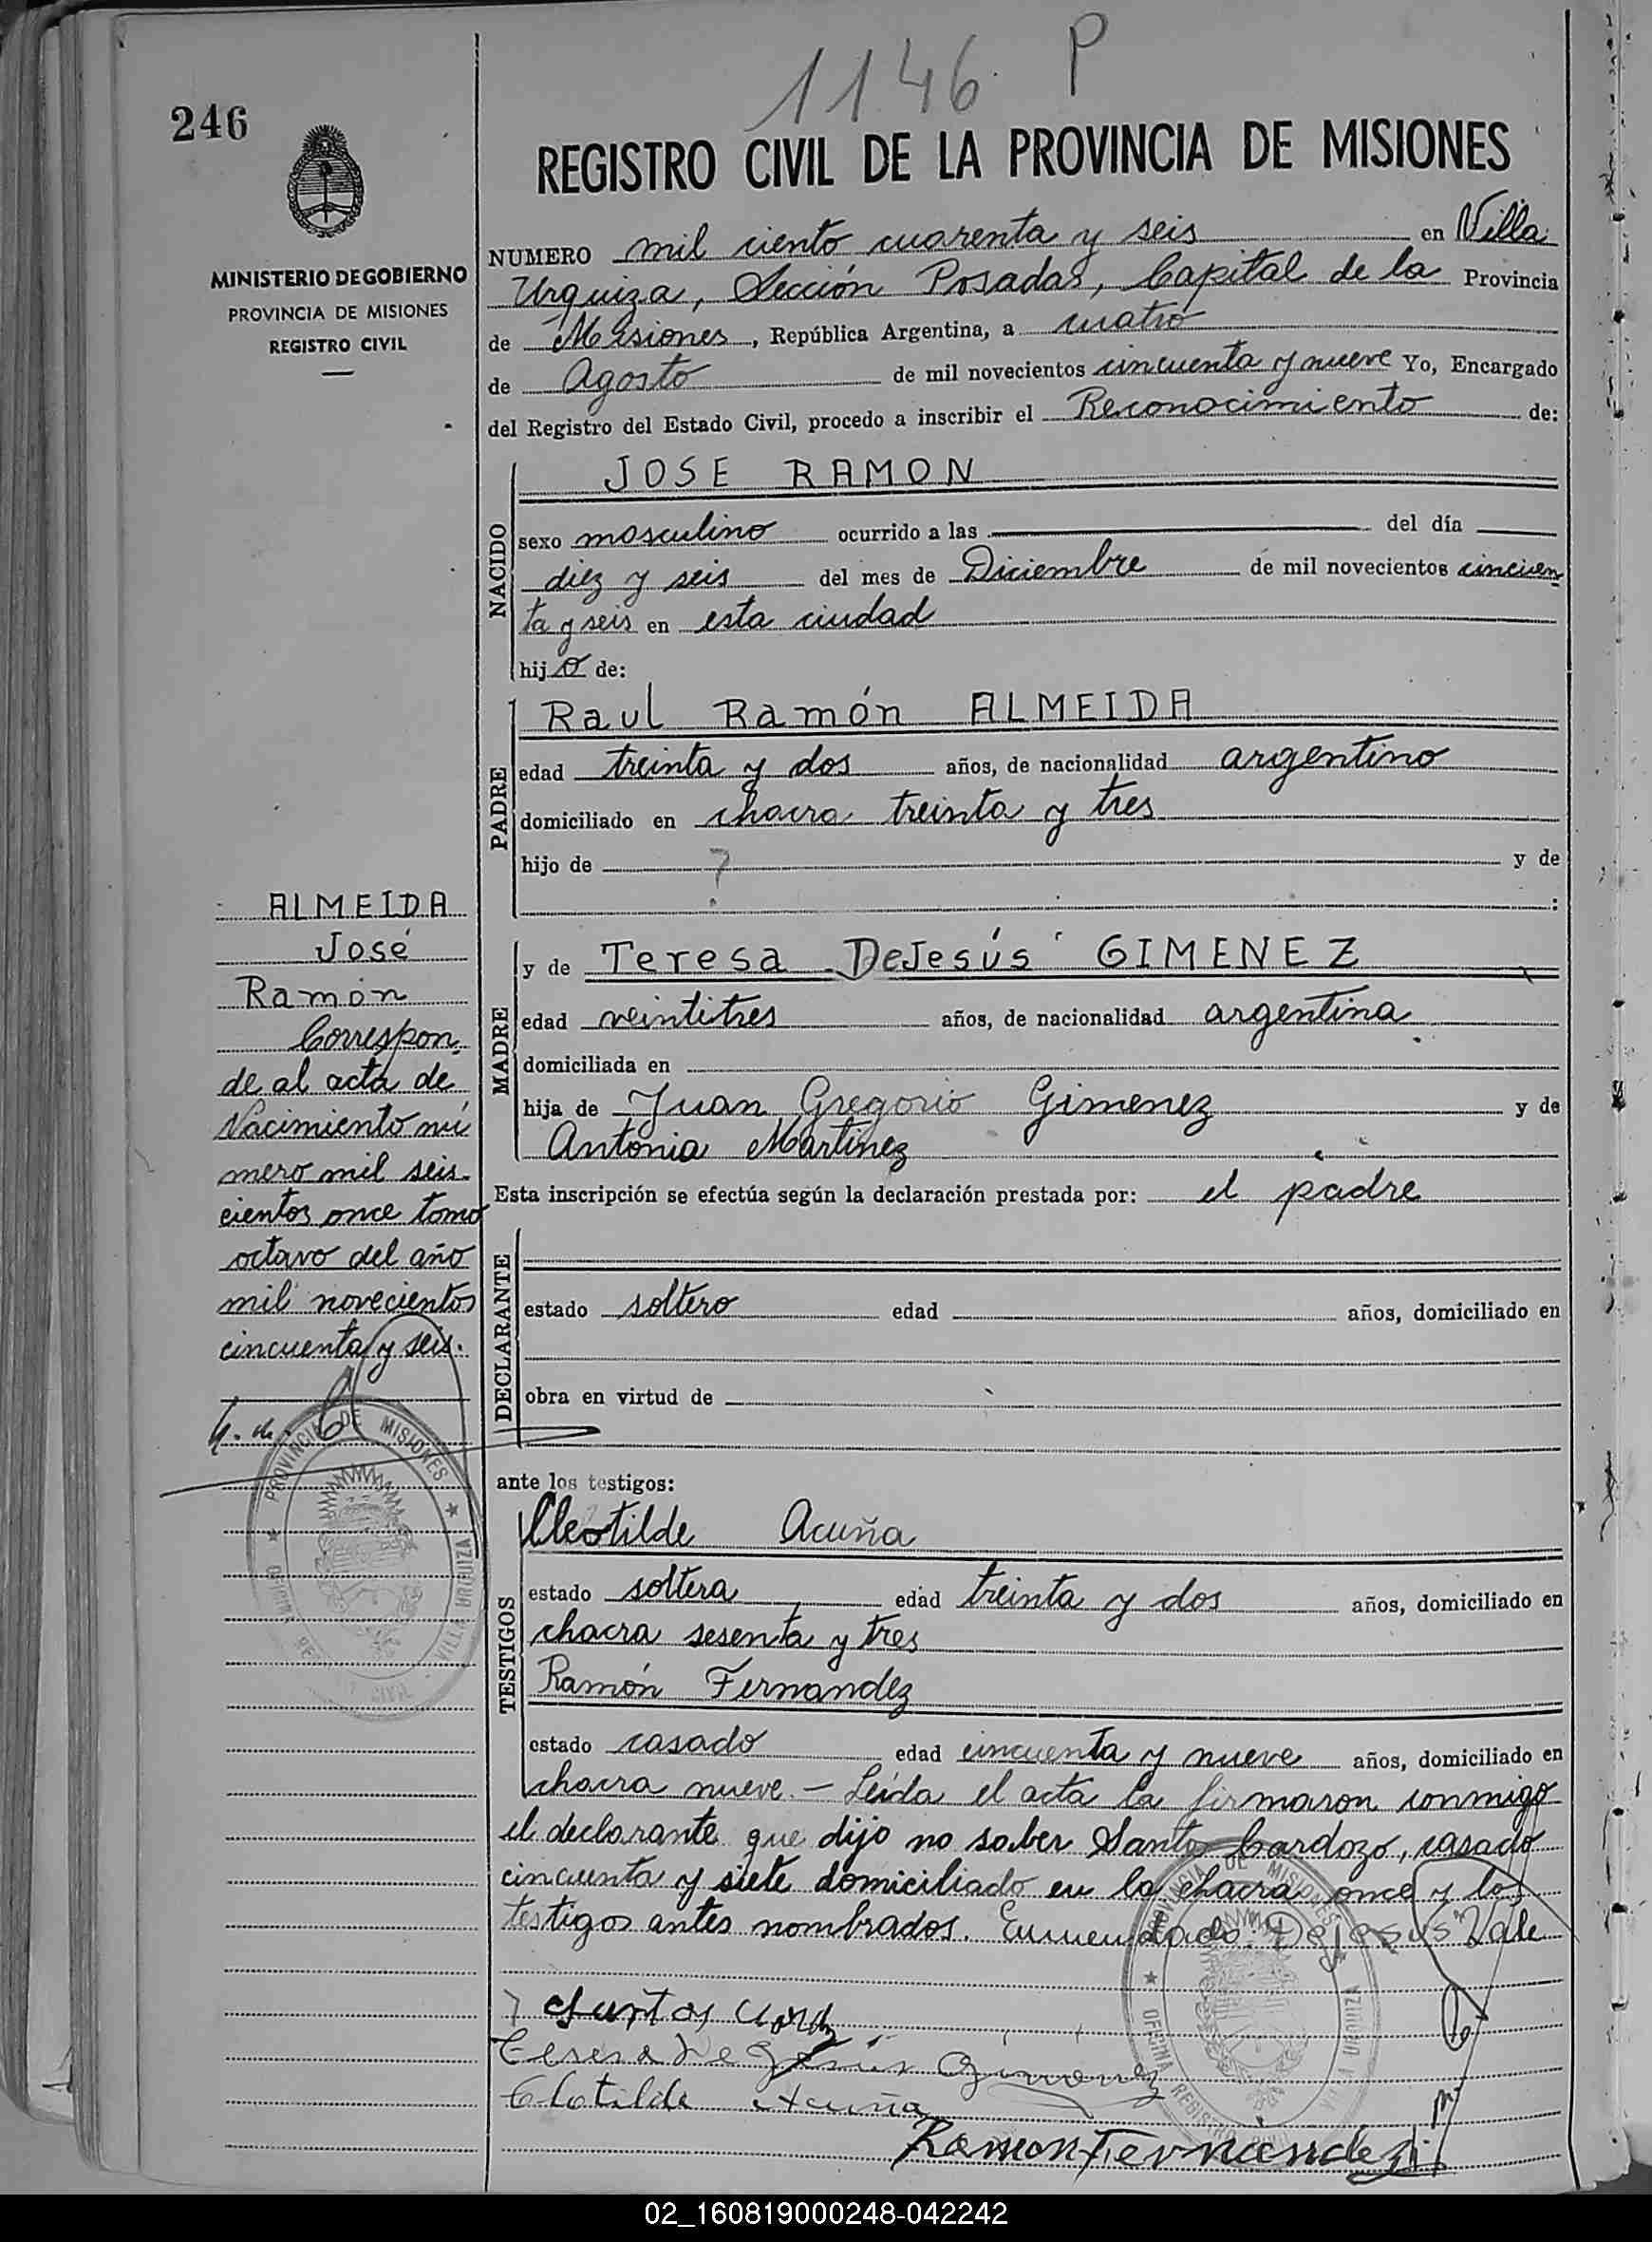 1146 P
246
REGISTRO CIVIL DE LA PROVINCIA DE MISIONES
MINISTERIO DE GOBIERNO
PROVINCIA DE MISIONES
REGISTRO CIVIL
NUMERO mil ciento cuarenta y seis en Villa
Urquiza, Sección Posadas, Capital de la Provincia
de Misiones, República Argentina, a cuatro
de Agosto de mil novecientos cincuenta y nueve Yo, Encargado
del Registro del Estado Civil, procedo a inscribir el Reconocimiento de:
NACIDO
JOSE RAMON
sexo masculino ocurrido a las del día
diez y seis del mes de Diciembre de mil novecientos cincuen
ta y seis en esta ciudad
hijo de:
PADRE
Raul Ramón ALMEIDA
edad treinta y dos años, de nacionalidad argentino
domiciliado en chacra treinta y tres
hijo de ? y de
:
MADRE
y de Teresa DeJesús GIMENEZ
edad veintitres años, de nacionalidad argentina
domiciliada en
hija de Juan Gregorio Gimenez y de
Antonia Martinez
Esta inscripción se efectúa según la declaración prestada por: el padre
DECLARANTE
estado soltero edad años, domiciliado en
obra en virtud de
ante los testigos:
TESTIGOS
Cleotilde Acuña
estado soltera edad treinta y dos años, domiciliado en
chacra sesenta y tres
Ramón Fernandez
estado casado edad cincuenta y nueve años, domiciliado en
chacra nueve.- Leída el acta la firmaron conmigo
el declarante que dijo no saber Santos Cardozo, casado
cincuenta y siete domiciliado en la chacra once y los
testigos antes nombrados. Enmendado: "DeJesús" Vale
Teresa de Jesús Gimenez
Clotilde Acuña
Ramon Fernandez
PROVINCIA DE MISIONES
OFICINA REGISTRO CIVIL
VILLA URQUIZA
ALMEIDA
José
Ramón
Correspon
de al acta de
Nacimiento nú
mero mil seis-
cientos once tomo
octavo del año
mil novecientos
cincuenta y seis.
PROVINCIA DE MISIONES
VILLA URQUIZA
02_160819000248-042242